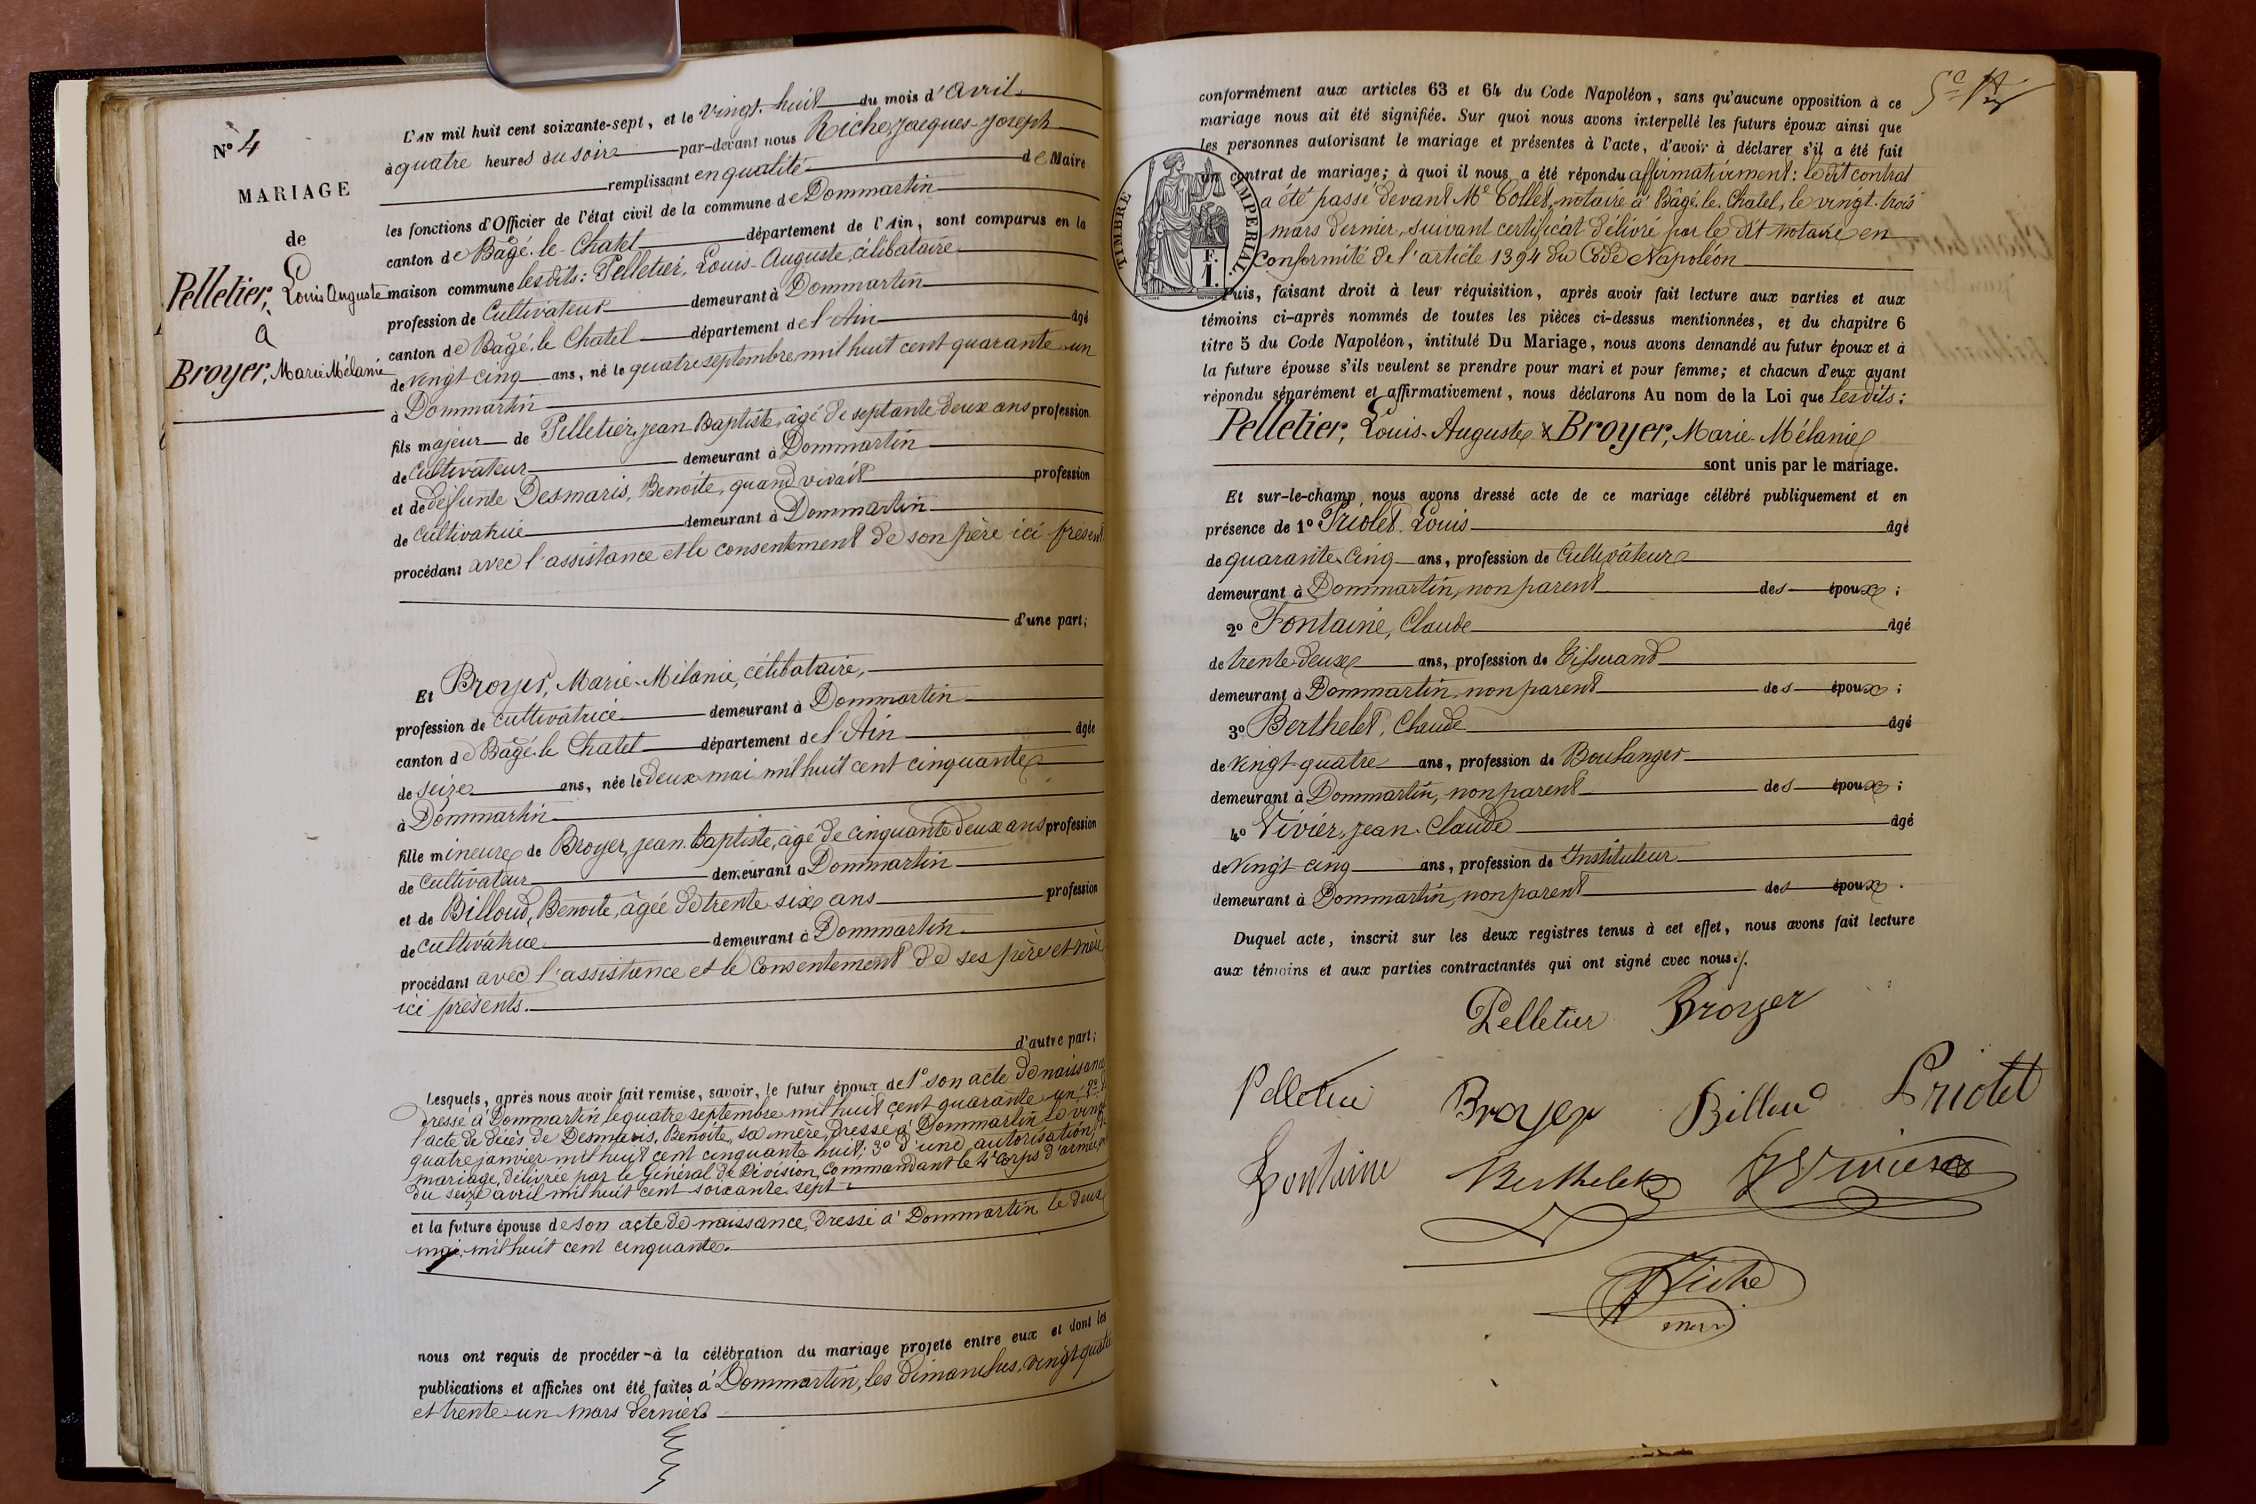 N° 4
MARIAGE
de
Pelletier, Louis Auguste
à
Broyer, Marie Mélanie
L'AN mil huit cent soixante-sept, et le vingt-huit du mois d'Avril
à quatre heures du soir par-devant nous Riche, Jacques-Joseph
remplissant en qualité de Maire
les fonctions d'Officier de l'état civil de la commune de Dommartin
canton de Bâgé-le-Chatel département de l'Ain, sont comparus en la
maison commune les dits: Pelletier, Louis-Auguste, célibataire
profession de Cultivateur demeurant à Dommartin
canton de Bâgé-le Chatel département de l'Ain âgé
de vingt-cinq ans, né le quatre septembre mil huit cent quarante un
à Dommartin
fils majeur de Pelletier, Jean-Baptiste, âgé de septante deux ans profession
de Cultivateur demeurant à Dommartin
et de défunte Desmaris, Benoite, quand vivait profession
de Cultivatrice demeurant à Dommartin
procédant avec l'assistance et le consentement de son père ici présent
d'une part;
Et Broyer, Marie-Mélanie, célibataire,
profession de cultivatrice demeurant à Dommartin
canton de Bâgé-le Chatel département de l'Ain âgée
de seize ans, née le deux mai mil huit cent cinquante
à Dommartin
fille mineure de Broyer, Jean-Baptiste, âgé de cinquante deux ans profession
de Cultivateur demeurant à Dommartin
et de Billoud, Benoite, âgée de trente-six ans profession
de Cultivatrice demeurant à Dommartin
procédant avec l'assistance et le consentement de ses père et mère
ici présents.
d'autre part;
Lesquels, après nous avoir fait remise, savoir, le futur époux de 1° son acte de naissance
dressé à Dommartin le quatre septembre mil huit cent quarante un; 2° de
l'acte de décès de Desmaris, Benoite, sa mère, dressé à Dommartin le vingt
quatre janvier mil huit cent cinquante huit; 3° d'une autorisation de
mariage, délivrée par le Général de Division, Commandant le 4e Corps d'armée,
du seize avril mil huit cent soixante sept
et la future épouse de son acte de naissance, dressé à Dommartin le deux
mai mil huit cent cinquante.
nous ont requis de procéder à la célébration du mariage projeté entre eux et dont les
publications et affiches ont été faites à Dommartin, les dimanches, vingt-quatre
et trente-un mars dernier
conformément aux articles 63 et 64 du Code Napoléon, sans qu'aucune opposition à ce
mariage nous ait été signifiée. Sur quoi nous avons interpellé les futurs époux ainsi que
les personnes autorisant le mariage et présentes à l'acte, d'avoir à déclarer s'il a été fait
un contrat de mariage; à quoi il nous a été répondu affirmativement: le dit contrat
a été passé devant Me Collet, notaire à Bâgé-le-Chatel, le vingt-trois
mars dernier, suivant certificat délivré par le dit notaire en
Conformité de l'article 1394 du Code Napoléon
TIMBRE IMPERIAL.
F.
1.
Puis, faisant droit à leur réquisition, après avoir fait lecture aux parties et aux
témoins ci-après nommés de toutes les pièces ci-dessus mentionnées, et du chapitre 6
titre 5 du Code Napoléon, intitulé Du Mariage, nous avons demandé au futur époux et à
la future épouse s'ils veulent se prendre pour mari et pour femme; et chacun d'eux ayant
répondu séparément et affirmativement, nous déclarons Au nom de la Loi que les dits:
Pelletier, Louis-Auguste & Broyer, Marie-Mélanie
sont unis par le mariage.
Et sur-le-champ nous avons dressé acte de ce mariage célébré publiquement et en
présence de 1° Priolet Louis âgé
de quarante-cinq ans, profession de Cultivateur
demeurant à Dommartin, non parent des époux;
2° Fontaine, Claude âgé
de trente-deux ans, profession de Tisserand
demeurant à Dommartin, non parent des époux;
3° Berthelet, Claude âgé
de vingt-quatre ans, profession de Boulanger
demeurant à Dommartin, non parent des époux;
4° Vivier, Jean-Claude âgé
de vingt-cinq ans, profession de Instituteur
demeurant à Dommartin, non parent des époux.
Duquel acte, inscrit sur les deux registres tenus à cet effet, nous avons fait lecture
aux témoins et aux parties contractantes qui ont signé avec nous.
Pelletier Broyer
Pelletier Broyer Billoud Priolet
Fontaine Berthelet Vivier
Riche
maire